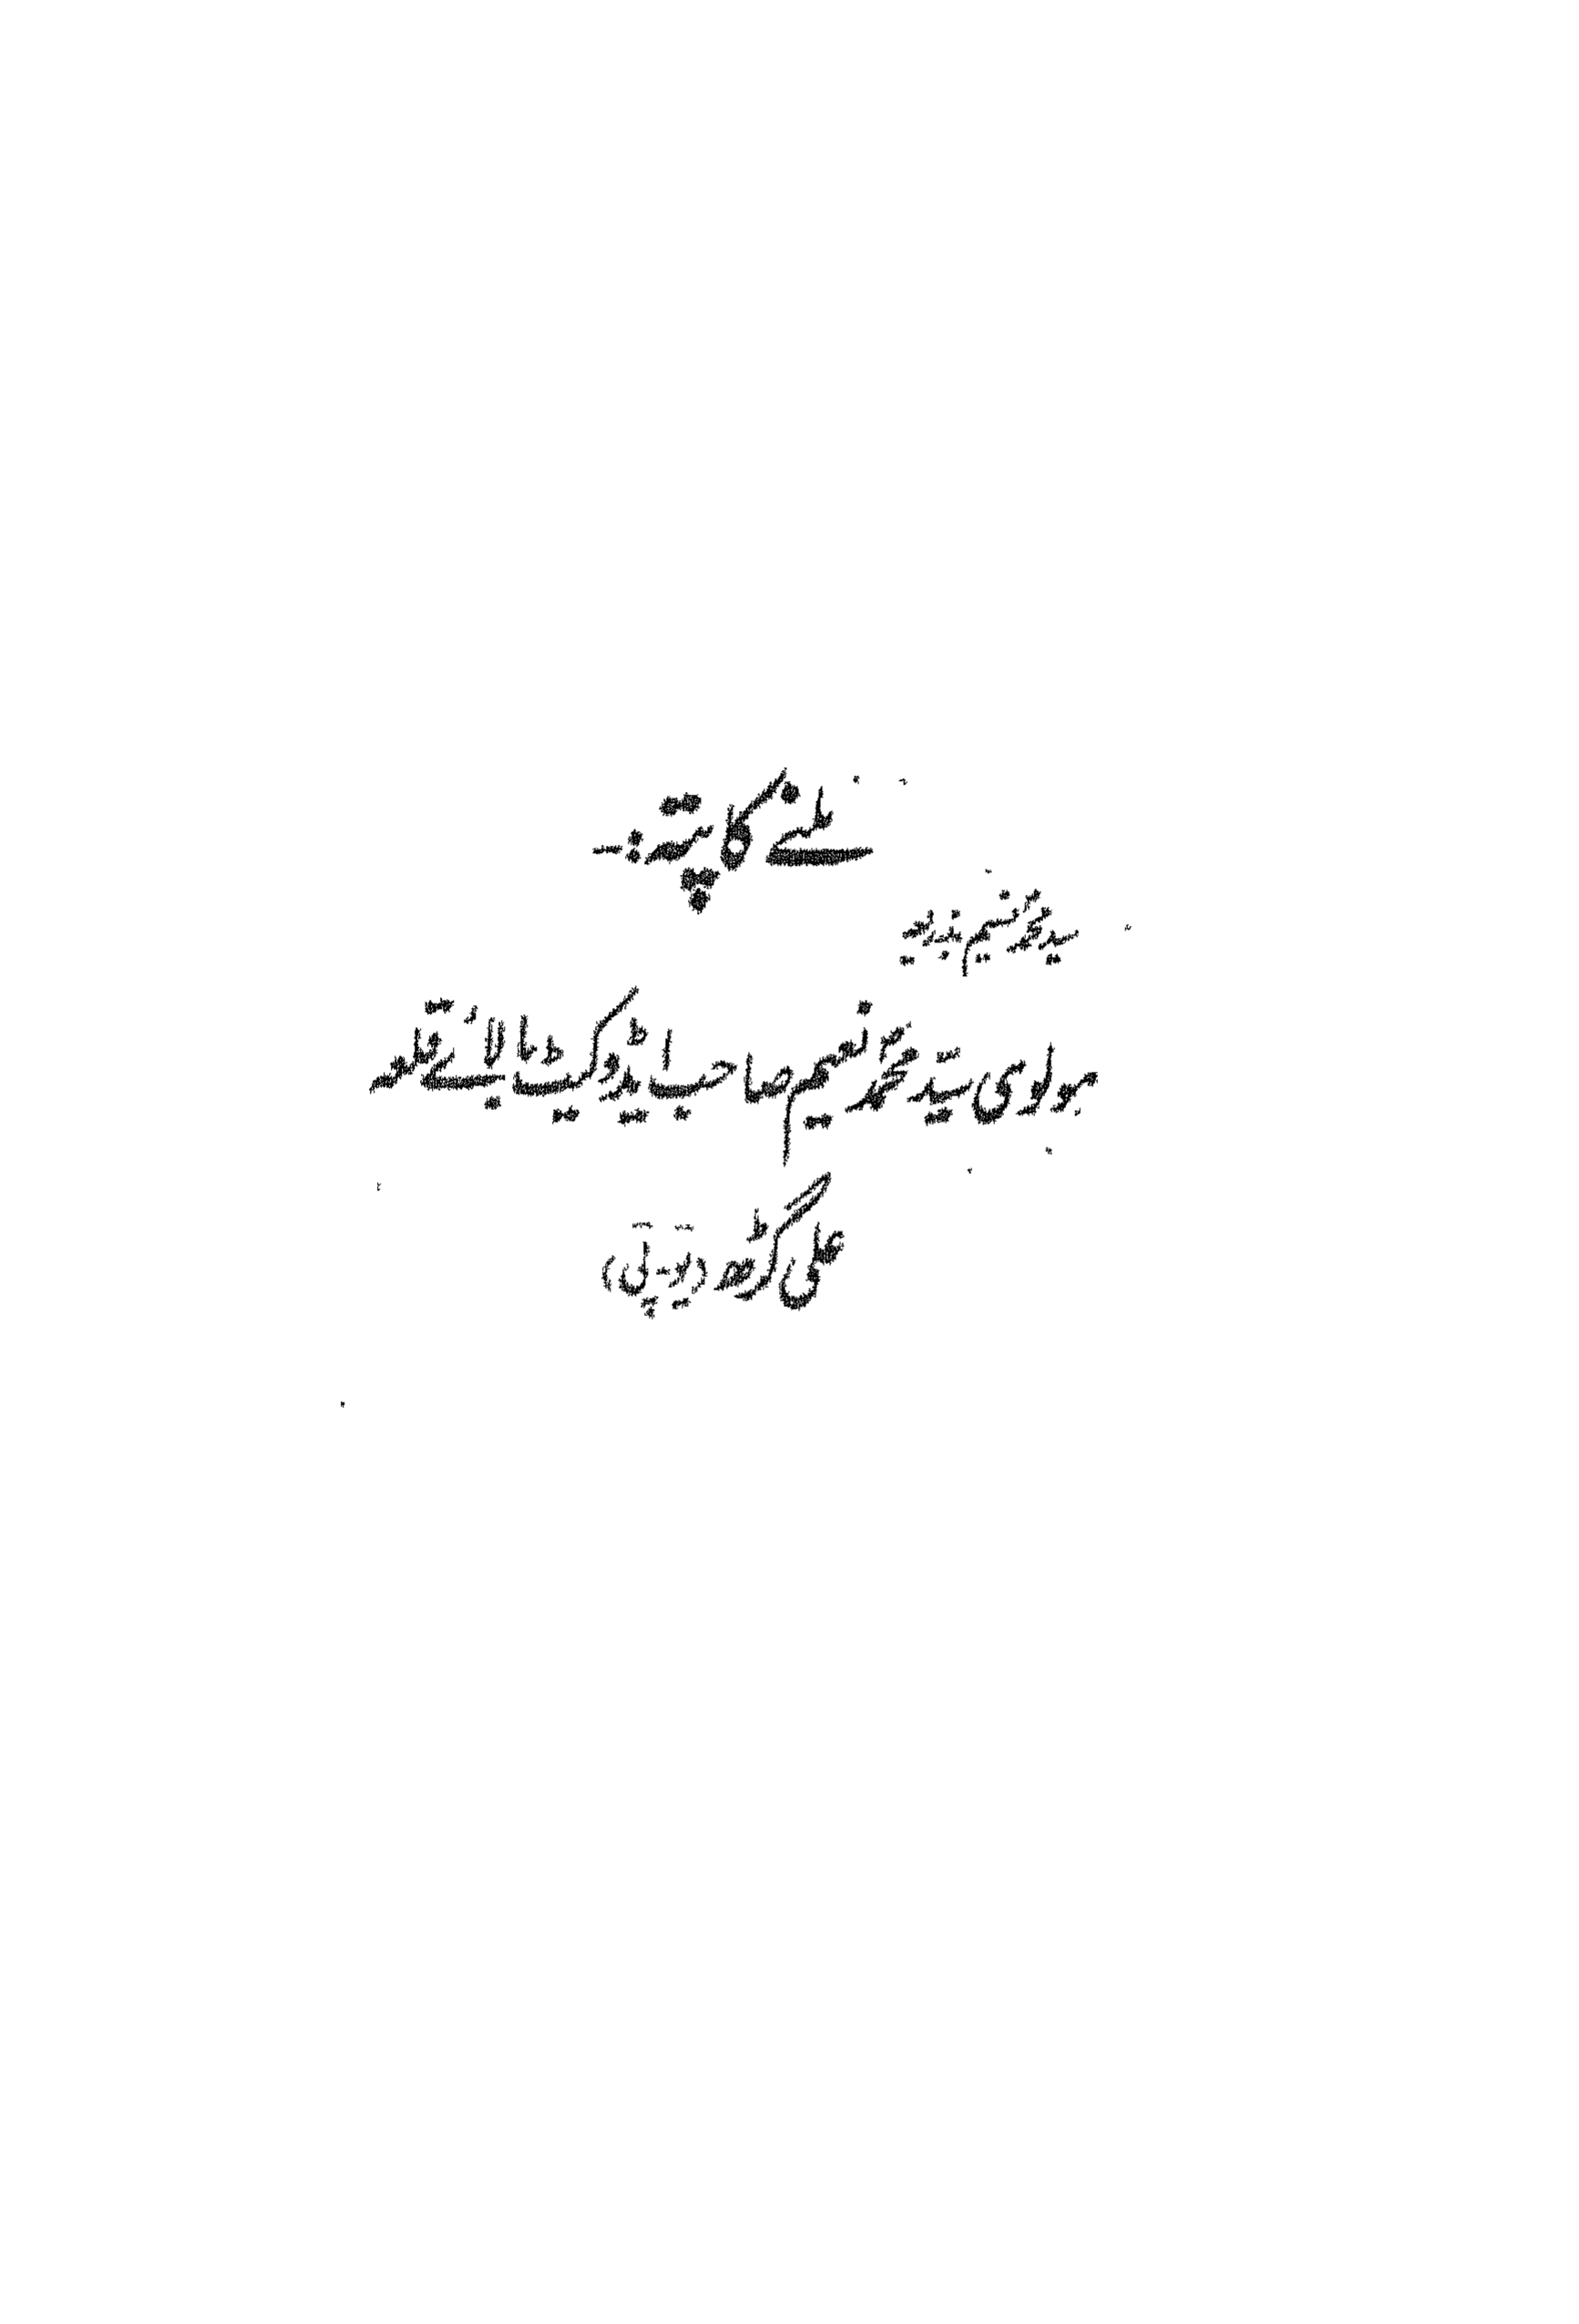 ملنے کا پتہ:۔
سید محمدؐ نسیم بذریعہ
مولوی سیّد محمدؐ نعیم صاحب ایڈوکیٹ بالائے قلعہ
علی گڑھ (یو۔پی)